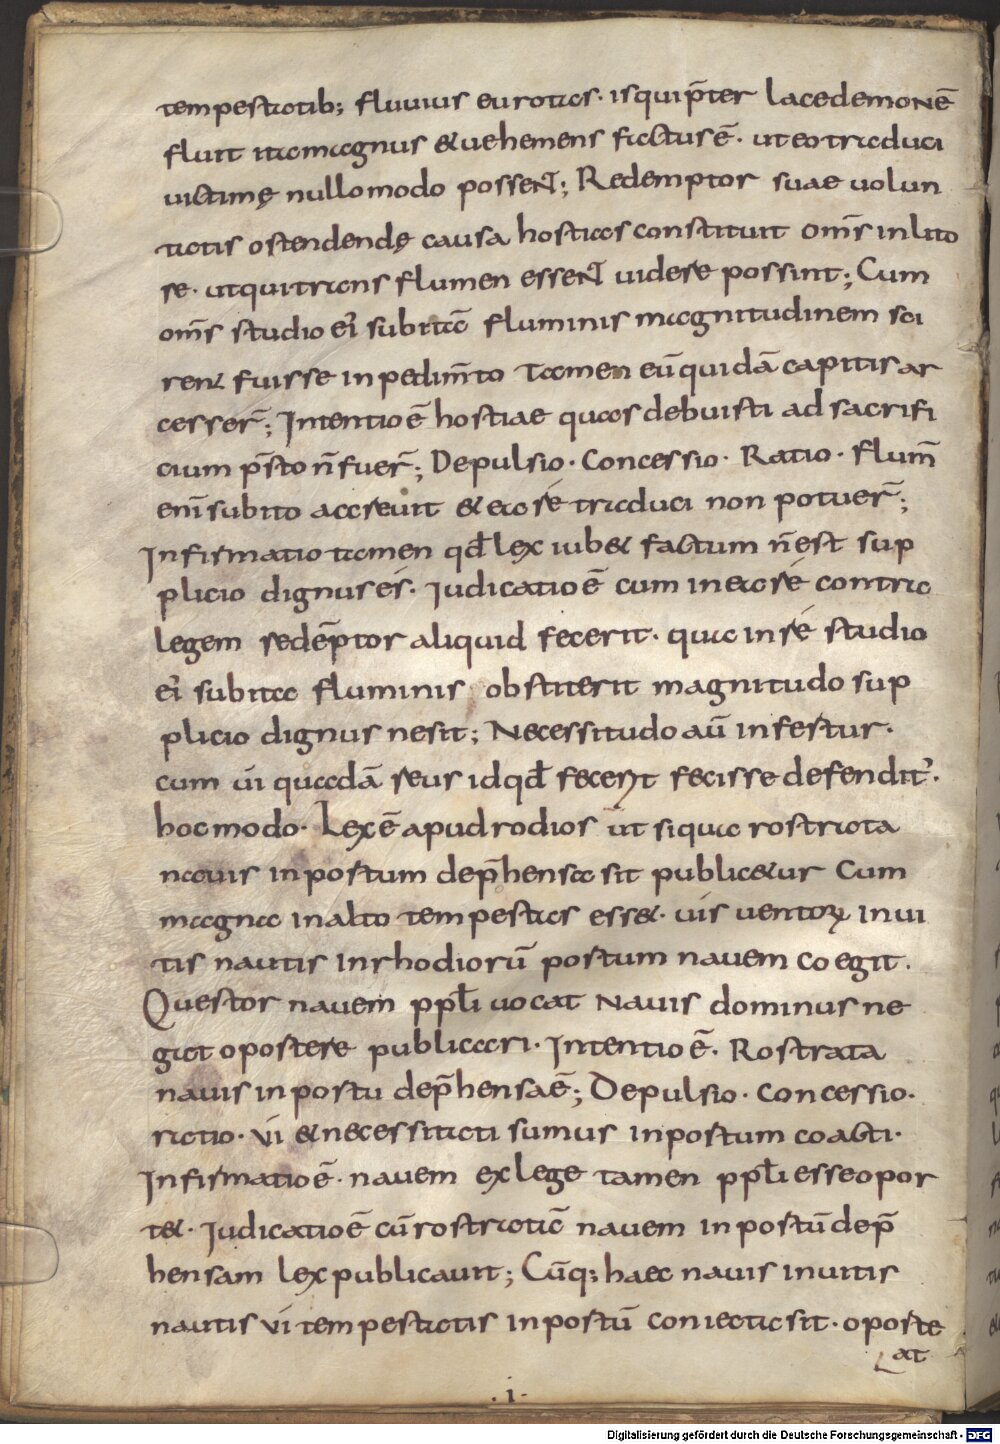 tempestatib; fluuius eurotas. is qui p̄ter lacedemonē
fluit ita magnus & uehemens factus ē. ut eo traduci
uictimę nullo modo possent; Redemptor suae uolun
tatis ostendendę causa hostias constituit om̄s in lito
re. ut qui trans flumen essent uidere possint; Cum
om̄s studio ei' subitā fluminis magnitudinem sci
ren& fuisse inpedim̄to tamen eū quidā capitis ar
cesser̄; Intentio ē hostiae quas debuisti ad sacrifi
cium p̄sto n̄ fuer̄; Depulsio. Concessio. Ratio. flum̄
eni' subito accreuit & ea ré traduci non potuer̄;
Infirmatio tamen qđ lex iub& factum n̄ est sup
plicio dignus és. Iudicatio ē cum in ea ré contra
legem redēptor aliquid fecerit. qua in ré studio
ei' subita fluminis obstiterit magnitudo sup
plicio dignus ne sit; Necessitudo aū infertur.
cum ui quadā reus id qđ fecerit fecisse defendit'.
hoc modo. Lex ē apud rodios ut si qua rostrata
nauis in portum dep̄hensa sit public&ur Cum
magna in alto tempestas ess&. uis uentoꝝ inui
tis nautis in rhodiorū portum nauem coegit.
Questor nauem ppłi uocat Nauis dominus ne
gat oportere publicari. Intentio ē. Rostrata
nauis in portu dep̄hensa ē; Depulsio. Concessio.
ratio. Vi & necessitati sumus in portum coacti.
Infirmatio ē. nauem ex lege tamen ppłi esse opor
t&. Iudicatio ē cū rostratā nauem in portū dep̄
hensam lex publicauit; Cūq; haec nauis inuitis
nautis vi tempestatis in portū coniecta sit. oporte
at
. i .
Digitalisierung gefördert durch die Deutsche Forschungsgemeinschaft - DFG